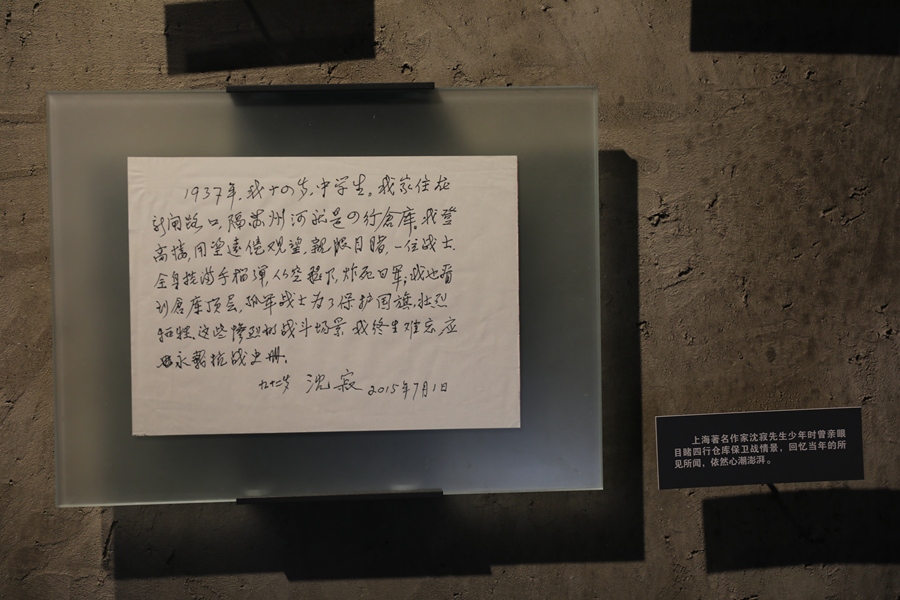 1937年，我十四岁，中学生。我家住在
新闸路口，隔苏州河就是四行仓库。我登
高楼，用望远镜观望，亲眼目睹，一位战士，
全身挂满手榴弹，从空跃下，炸死日军；我也看
到仓库顶层，孤军战士为了保护国旗，壮烈
牺牲。这些惨烈的战斗场景，我终生难忘，应
永载抗战史册。
九十二岁 沈寂 2015年7月1日
上海著名作家沈寂先生少年时曾亲眼
目睹四行仓库保卫战情景，回忆当年的所
见所闻，依然心潮澎湃。